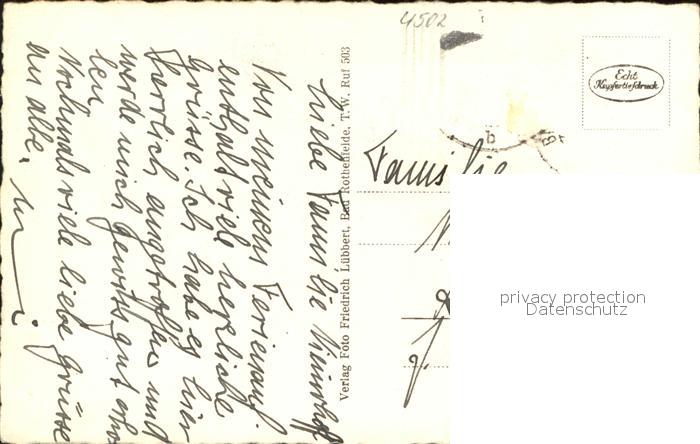 4502
Echt
Kupfertiefdruck
Liebe Familie
Von meinem Ferienauf-
enthalt viele herzliche
Grüsse. Ich habe es hier
herrlich angetroffen und
werde mich gewiss gut erho-
len.
Nochmals viele liebe Grüsse
an alle.
Verlag Foto Friedrich Lübbert, Bad Rothenfelde, T. W. Ruf 503
Familie
privacy protection
Datenschutz